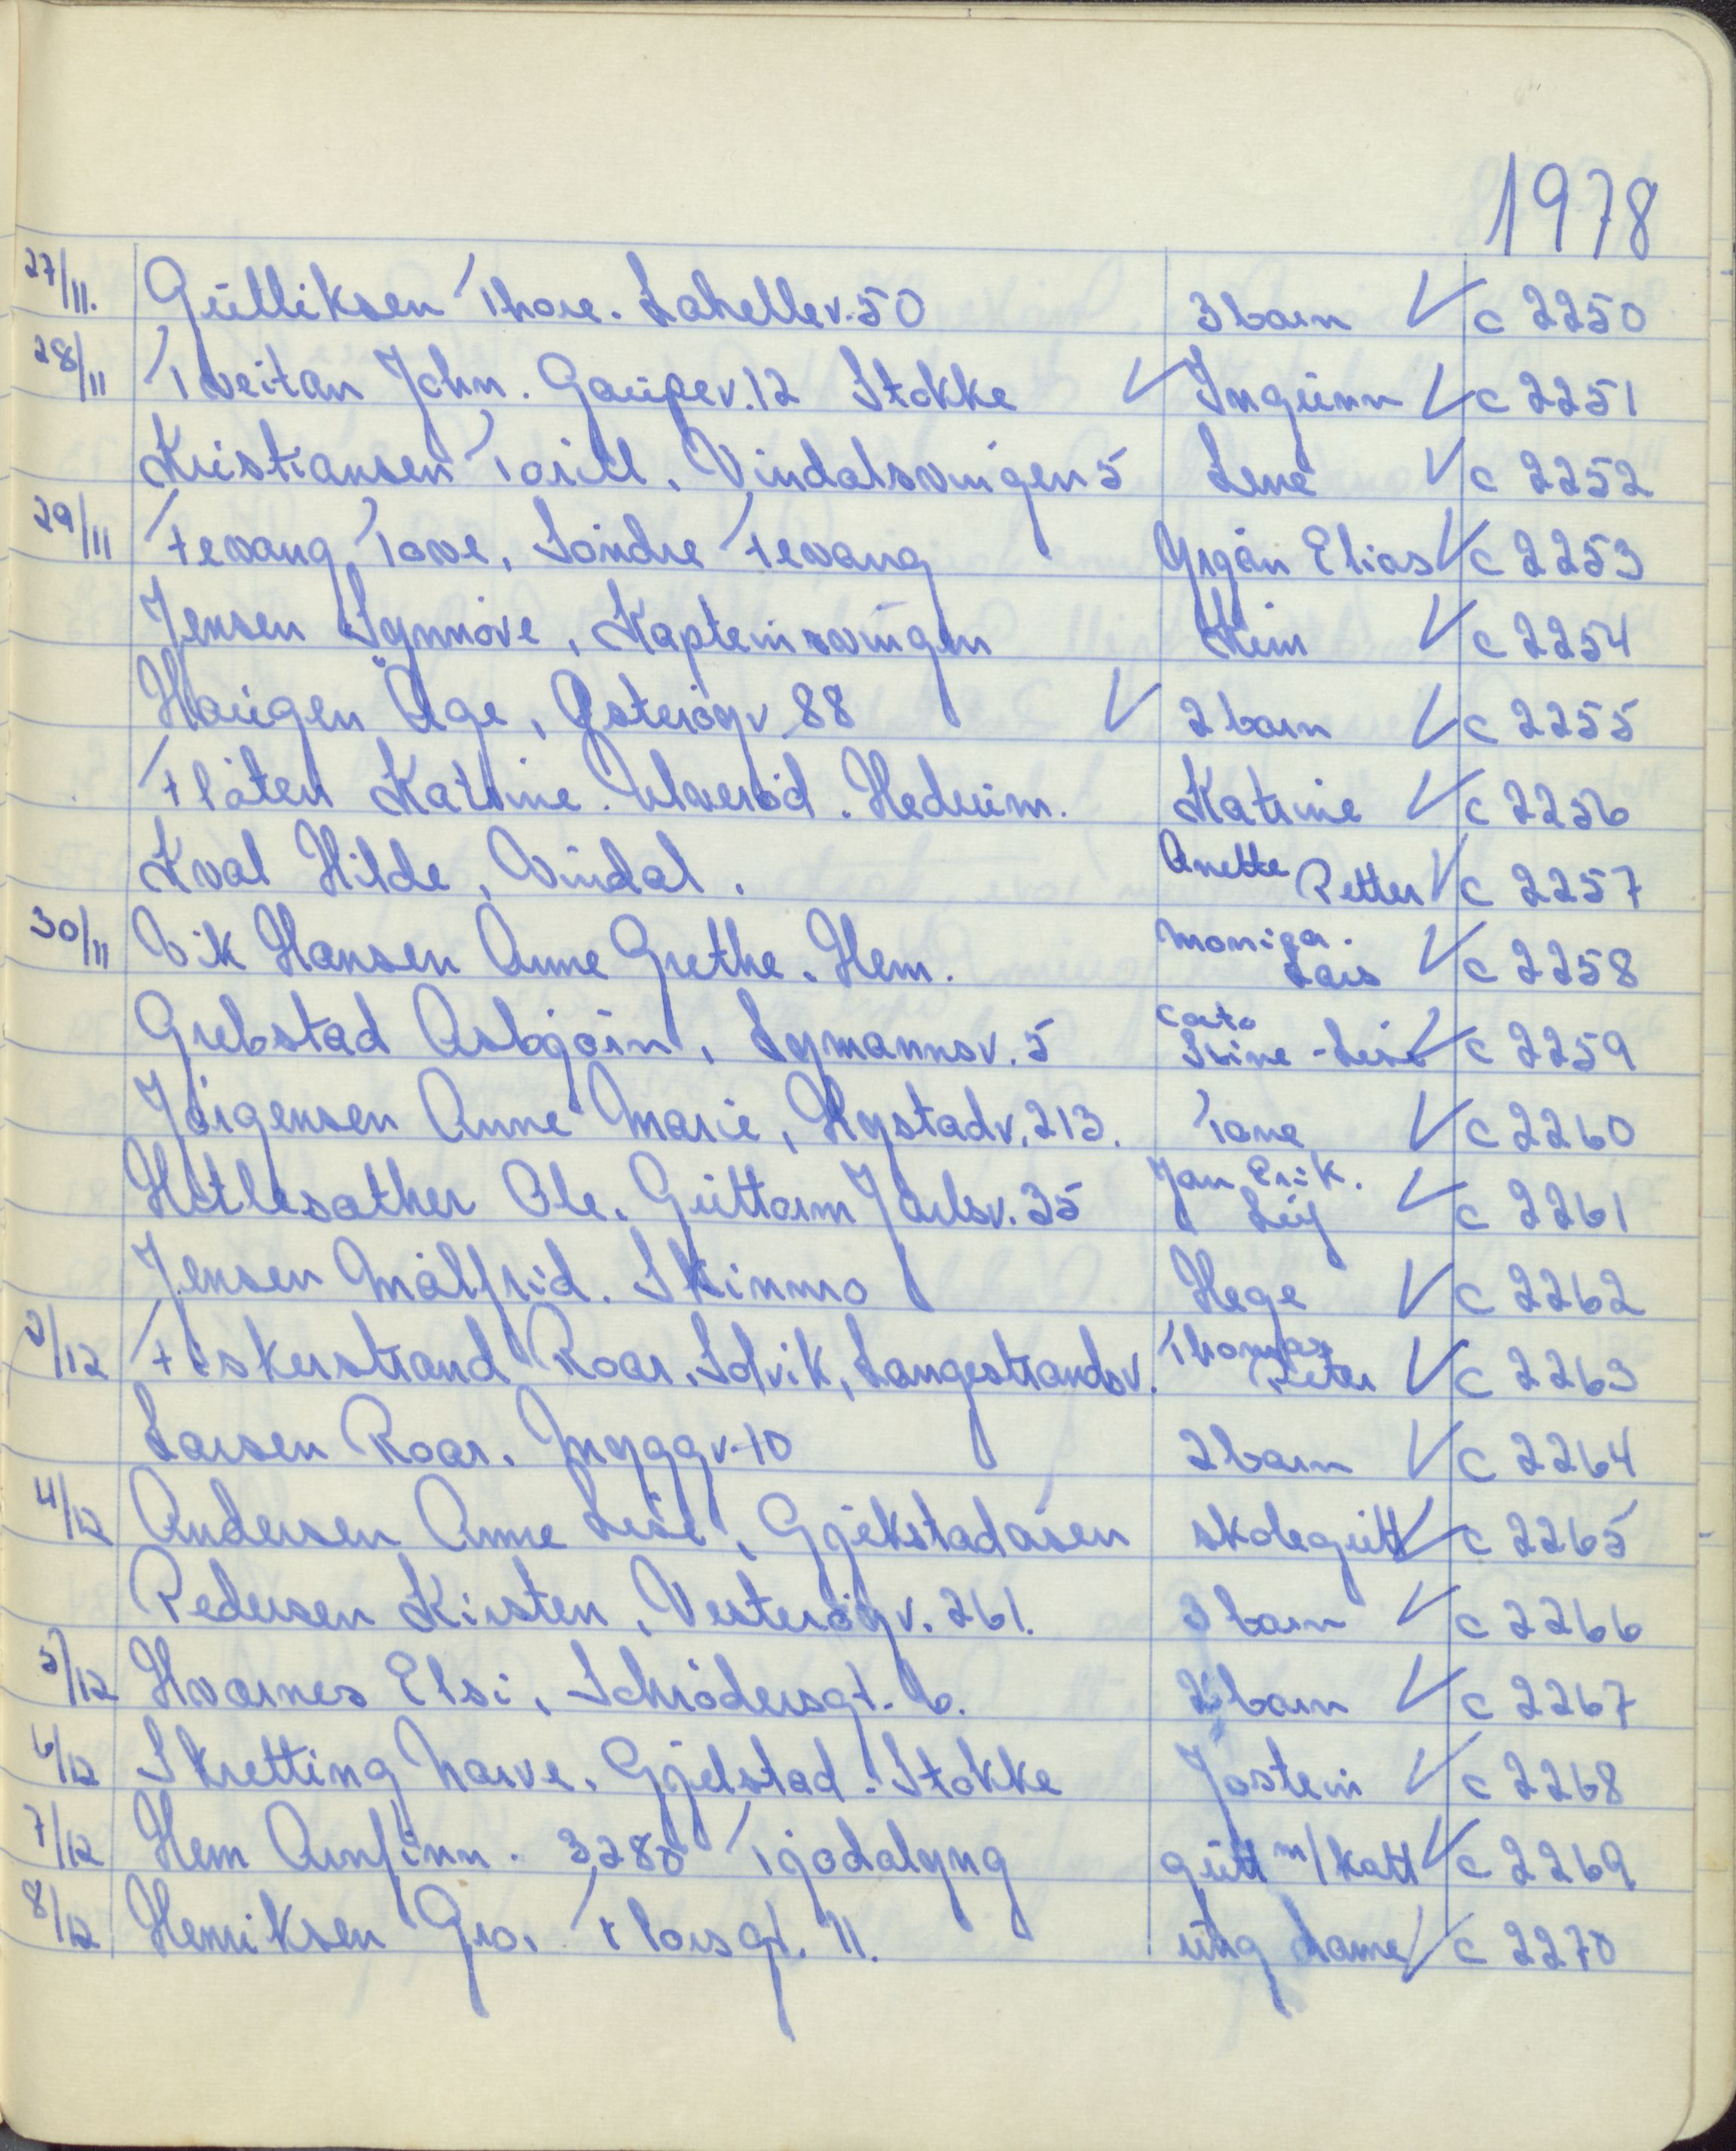 1978
27/11. Gulliksen Thore. Lahellev. 50 3 barn ✓ c 2250
28/11 Tveitan John. Gaupev. 12 Stokke ✓ Ingunn ✓ c 2251
Kristiansen Torill, Vindalsvingen 5 Lene ✓ c 2252
29/11 Fevang Tove, Söndre Fevang Ørjan Elias ✓ c 2253
Jensen Synnöve, Kapteinsvingen Kim ✓ c 2254
Haugen Åge, Østeröyv 88 ✓ 2 barn ✓ c 2255
Flåten Katrine. Ulveröd. Hedrum. Katrine ✓ c 2256
Kval Hilde, Vindal. Anette Petter ✓ c 2257
30/11 Vik Hansen Anne Grethe. Hem. Monica. Lars ✓ c 2258
Grebstad Asbjörn, Lymannsv. 5 Cato Stine-Lise ✓ c 2259
Jörgensen Anne Marie, Hystadv. 213. Tone ✓ c 2260
Hetlesæther Ole. Guttorm Jarlsv. 35 Jan Erik. ✓ c 2261
Jensen Målfrid. Skinmo Hege ✓ c 2262
2/12 Fiskerstrand Roar, Solvik, Langestrandsv. Thomas Peter ✓ c 2263
Larsen Roar. Myggv. 10 2 barn ✓ c 2264
4/12 Andersen Anne Lise, Gjekstadåsen skolegutt ✓ c 2265
Pedersen Kirsten, Vesteröyv. 261. 3 barn ✓ c 2266
5/12 Hvarnes Elsi, Schrödersgt. 6. 2 barn ✓ c 2267
6/12 Skretting Narve. Gjelstad. Stokke Jostein ✓ c 2268
7/12 Hem Arnfinn. 3280 Tjodalyng gutt m/katt ✓ c 2269
8/12 Henriksen Gro. Thorsgt. 11. ung dame ✓ c 2270